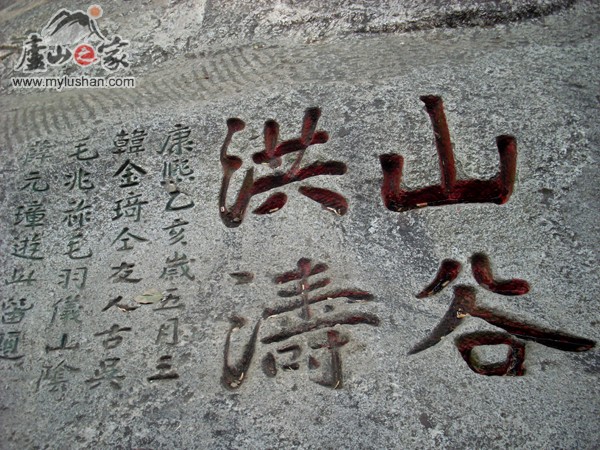 廬山之家
www.mylushan.com
山谷
洪濤
康熙乙亥歲五月三
韓金琦仝友人古吳
毛兆祚毛羽儀山陰
元遊此皆題